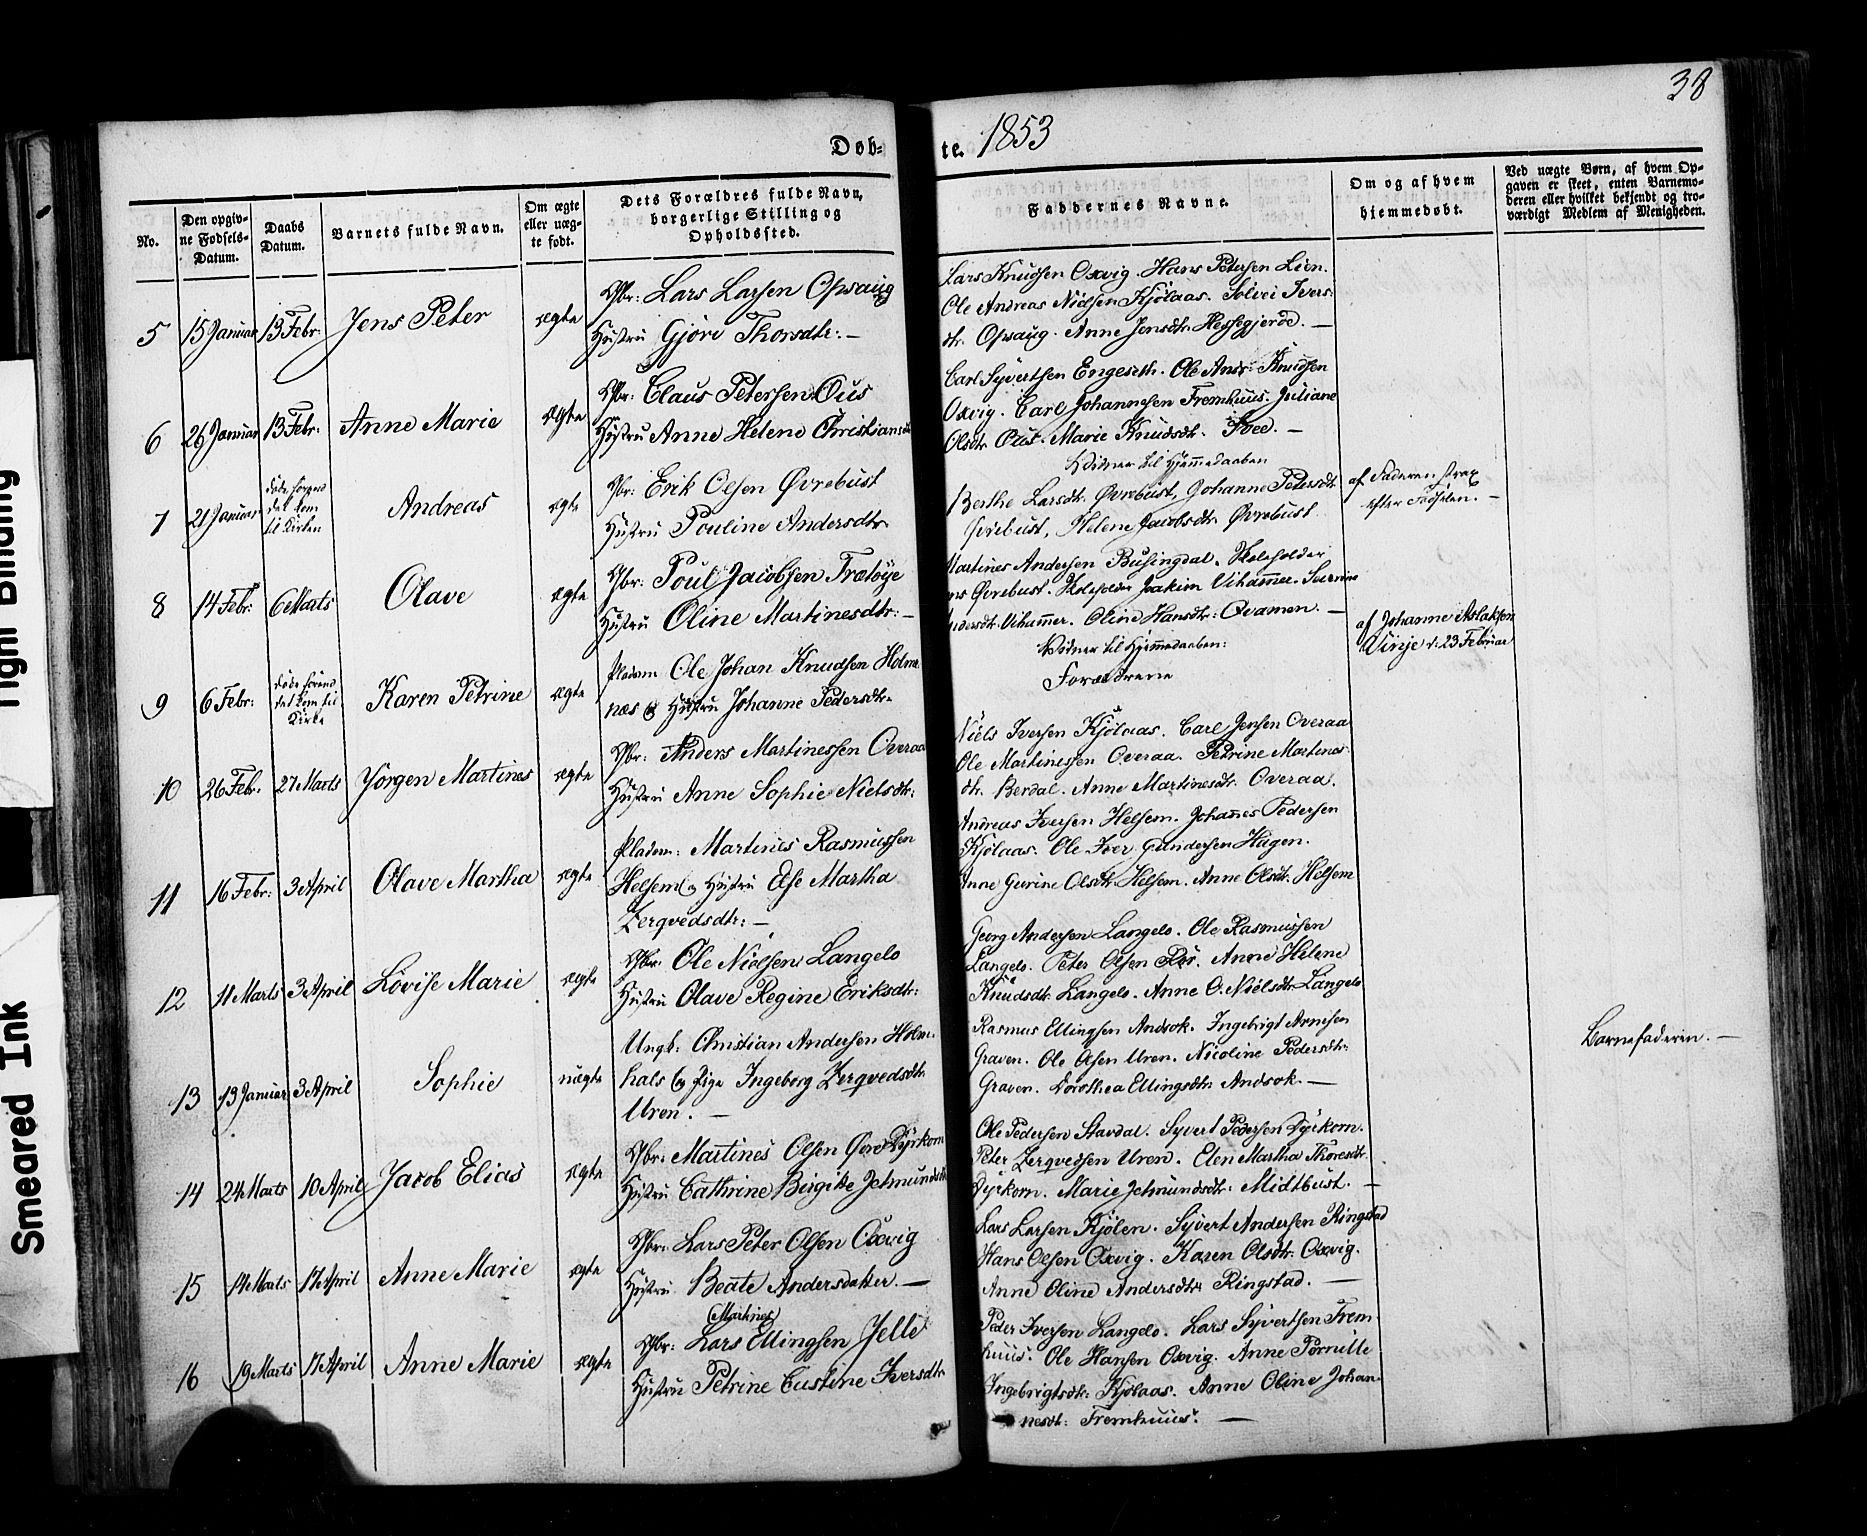 38
Døb-
te. 1853
No.
Den opgiv-
ne Fødsels-
Datum.
Daabs
Datum.
Barnets fulde Navn.
Om ægte
eller uæg-
te født.
Dets Forældres fulde Navn,
borgerlige Stilling og
Opholdssted.
Faddernes Navne.
Om og af hvem
hjemmedøbt.
Ved uægte Børn, af hvem Op-
gaven er skeet, enten Barnemo-
deren eller hvilket bekjendt og tro-
værdigt Medlem af Menigheden.
5 15 Januar 13 Febr: Jens Peter ægte
Gbr: Lars Larsen Opsaug
Hustru Gjøre Thorsdtr: —
Lars Knudsen Oxvig. Hans Petersen Lien.
Ole Andreas Nielsen Kjölaas. Solvei Ivers-
dtr. Opsaug. Anne Jensdtr. Hessegjerde. —
6 26 Januar 13 Febr: Anne Marie ægte
Gbr: Claus Petersen Ous
Hustru Anne Helene Christiansdtr
Carl Syvertsen Engeseth. Ole Andr: Knudsen
Oxvig. Carl Johannesen Fremhuus. Juliane
Olsdtr. Ous. Marie Knudsdtr. —
7 21 Januar døde førend
det kom
til Kirken
Andreas ægte
Gbr: Erik Olsen Øvrebust
Hustru Pouline Andersdtr.
Vidner til Hjemmedaaben
Berthe Larsdtr. Øvrebust, Johanne Petersdtr
Øvrebust, Helene Jacobsdtr. Øvrebust
af Faderen strax
efter Fødselen. —
8 14 Febr: 6 Marts Olave ægte
Gbr: Poul Jacobsen Frøtøye
Hustru Oline Martinesdtr: —
Martines Andersen Busingdal. Skoleholder
Øvrebust. Skoleholder Joakim Vihammer.
Andersdtr. Vihammer. Oline Hansdtr: Qvamen. —
9 6 Febr: døde førend
det kom til
Kirke
Karen Petrine ægte
Pladsm. Ole Johan Knudsen Holm-
næs og Hustru Johanne Pedersdtr.
Vidner til Hjemmedaaben:
Forældrene
af Johanne Aslaksen
Vinje d: 23 Februar
10 26 Febr. 27 Marts Jørgen Martines ægte
Gbr: Anders Martinessen Overaa
Hustru Anne Sophie Nielsdtr:
Niels Iversen Kjölaas. Carl Jensen Overaa
Ole Martinessen Overaa. Petrine Martines-
dtr. Berdal. Anne Martinesdtr. Overaa.
11 16 Febr: 3 April Olave Martha ægte
Pladsm: Martines Rasmussen
Helsem og Hustru Else Martha
Zerqvedsdtr: —
Andreas Iversen Helsem. Johannes Pedersen
Kjölaas. Ole Iver Gundersen Hagen.
Anne Gurine Olsdtr. Helsem. Anne Olsdtr. Helsem
12 11 Marts 3 April Lovise Marie ægte
Gbr: Ole Nielsen Langelo
Hustru Olave Regine Eriksdtr:
Georg Andersen Langelo. Ole Rasmussen
Langelo. Peter Olsen Rör. Anne Helene
Knudsdtr. Langelo. Anne O. Nielsdtr. Langelo
13 13 Januar 3 April Sophie uægte
Ungk: Christian Andersen Holm-
hals og Pige Ingeborg Zerqvedsdtr.
Uren. —
Rasmus Ellingsen Andsok. Ingebrigt Arnesen
Graven. Ole Olsen Uren. Nicoline Pedersdtr:
Graven. Dorothea Ellingsdtr. Andsok. —
Barnefaderen. —
14 24 Marts 10 April Jacob Elias ægte
Gbr: Martines Olsen Øvre Dyrkorn
Hustru Cathrine Birgitte Jetmundsdtr
Ole Pedersen Stavdal. Syvert Pedersen Dyrkorn.
Peter Zerqvedsen Uren. Elen Martha Thoresdtr.
Dyrkorn. Marie Jetmundsdtr. Midtbust. —
15 14 Marts 17 April Anne Marie ægte
Gbr: Lars Peter Olsen Oxvig
Hustru Beate Andersdatter. —
Lars Larsen Kjølen. Syvert Andersen Ringstad
Hans Olsen Oxvig. Karen Olsdtr. Oxvig.
Anne Oline Andersdtr. Ringstad. —
16 19 Marts 17 April Anne Marie ægte
(Martines)
Gbr: Lars Ellingsen Jelle
Hustru Petrine Custine Iversdtr.
Peder Iversen Langelo. Lars Syvertsen Frem-
huus. Ole Hansen Oxvig. Anne Pernille
Ingebrigtsdtr. Kjölaas. Anne Oline Johan-
nesdt: Fremhuus. —
Tight Binding
Smeared Ink